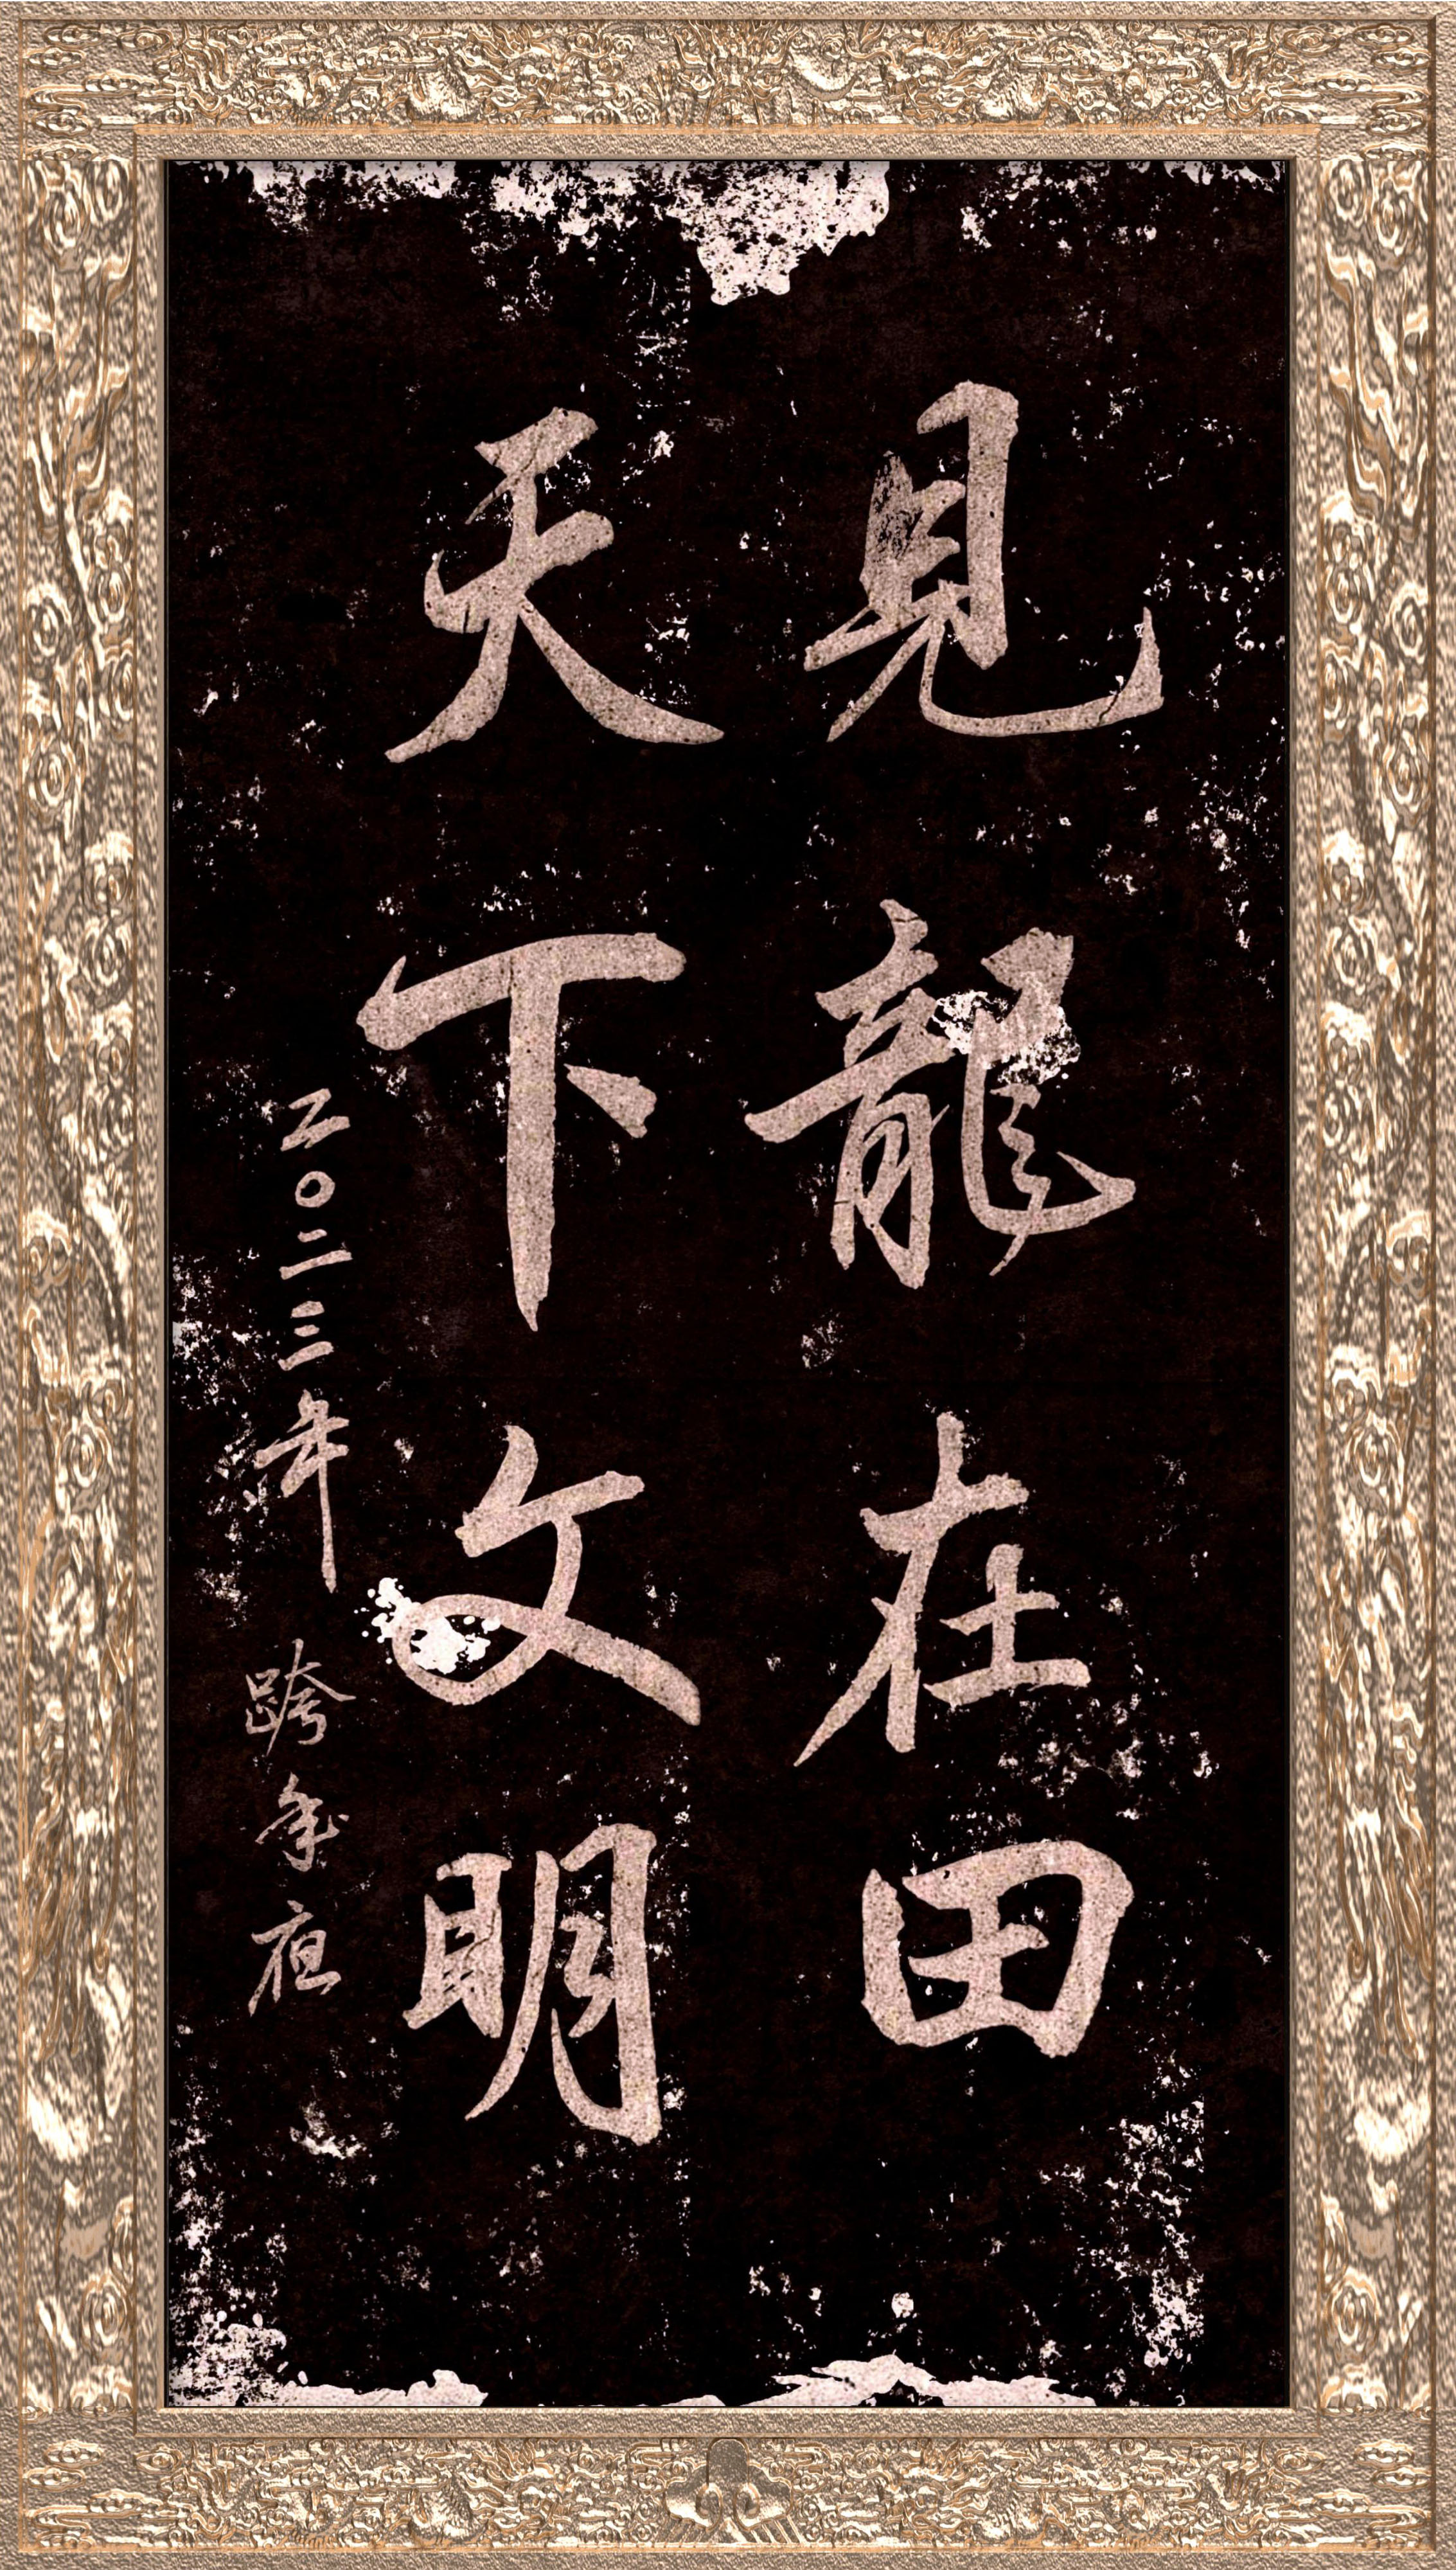 見龍在田
天下文明
二〇二三年 跨年夜